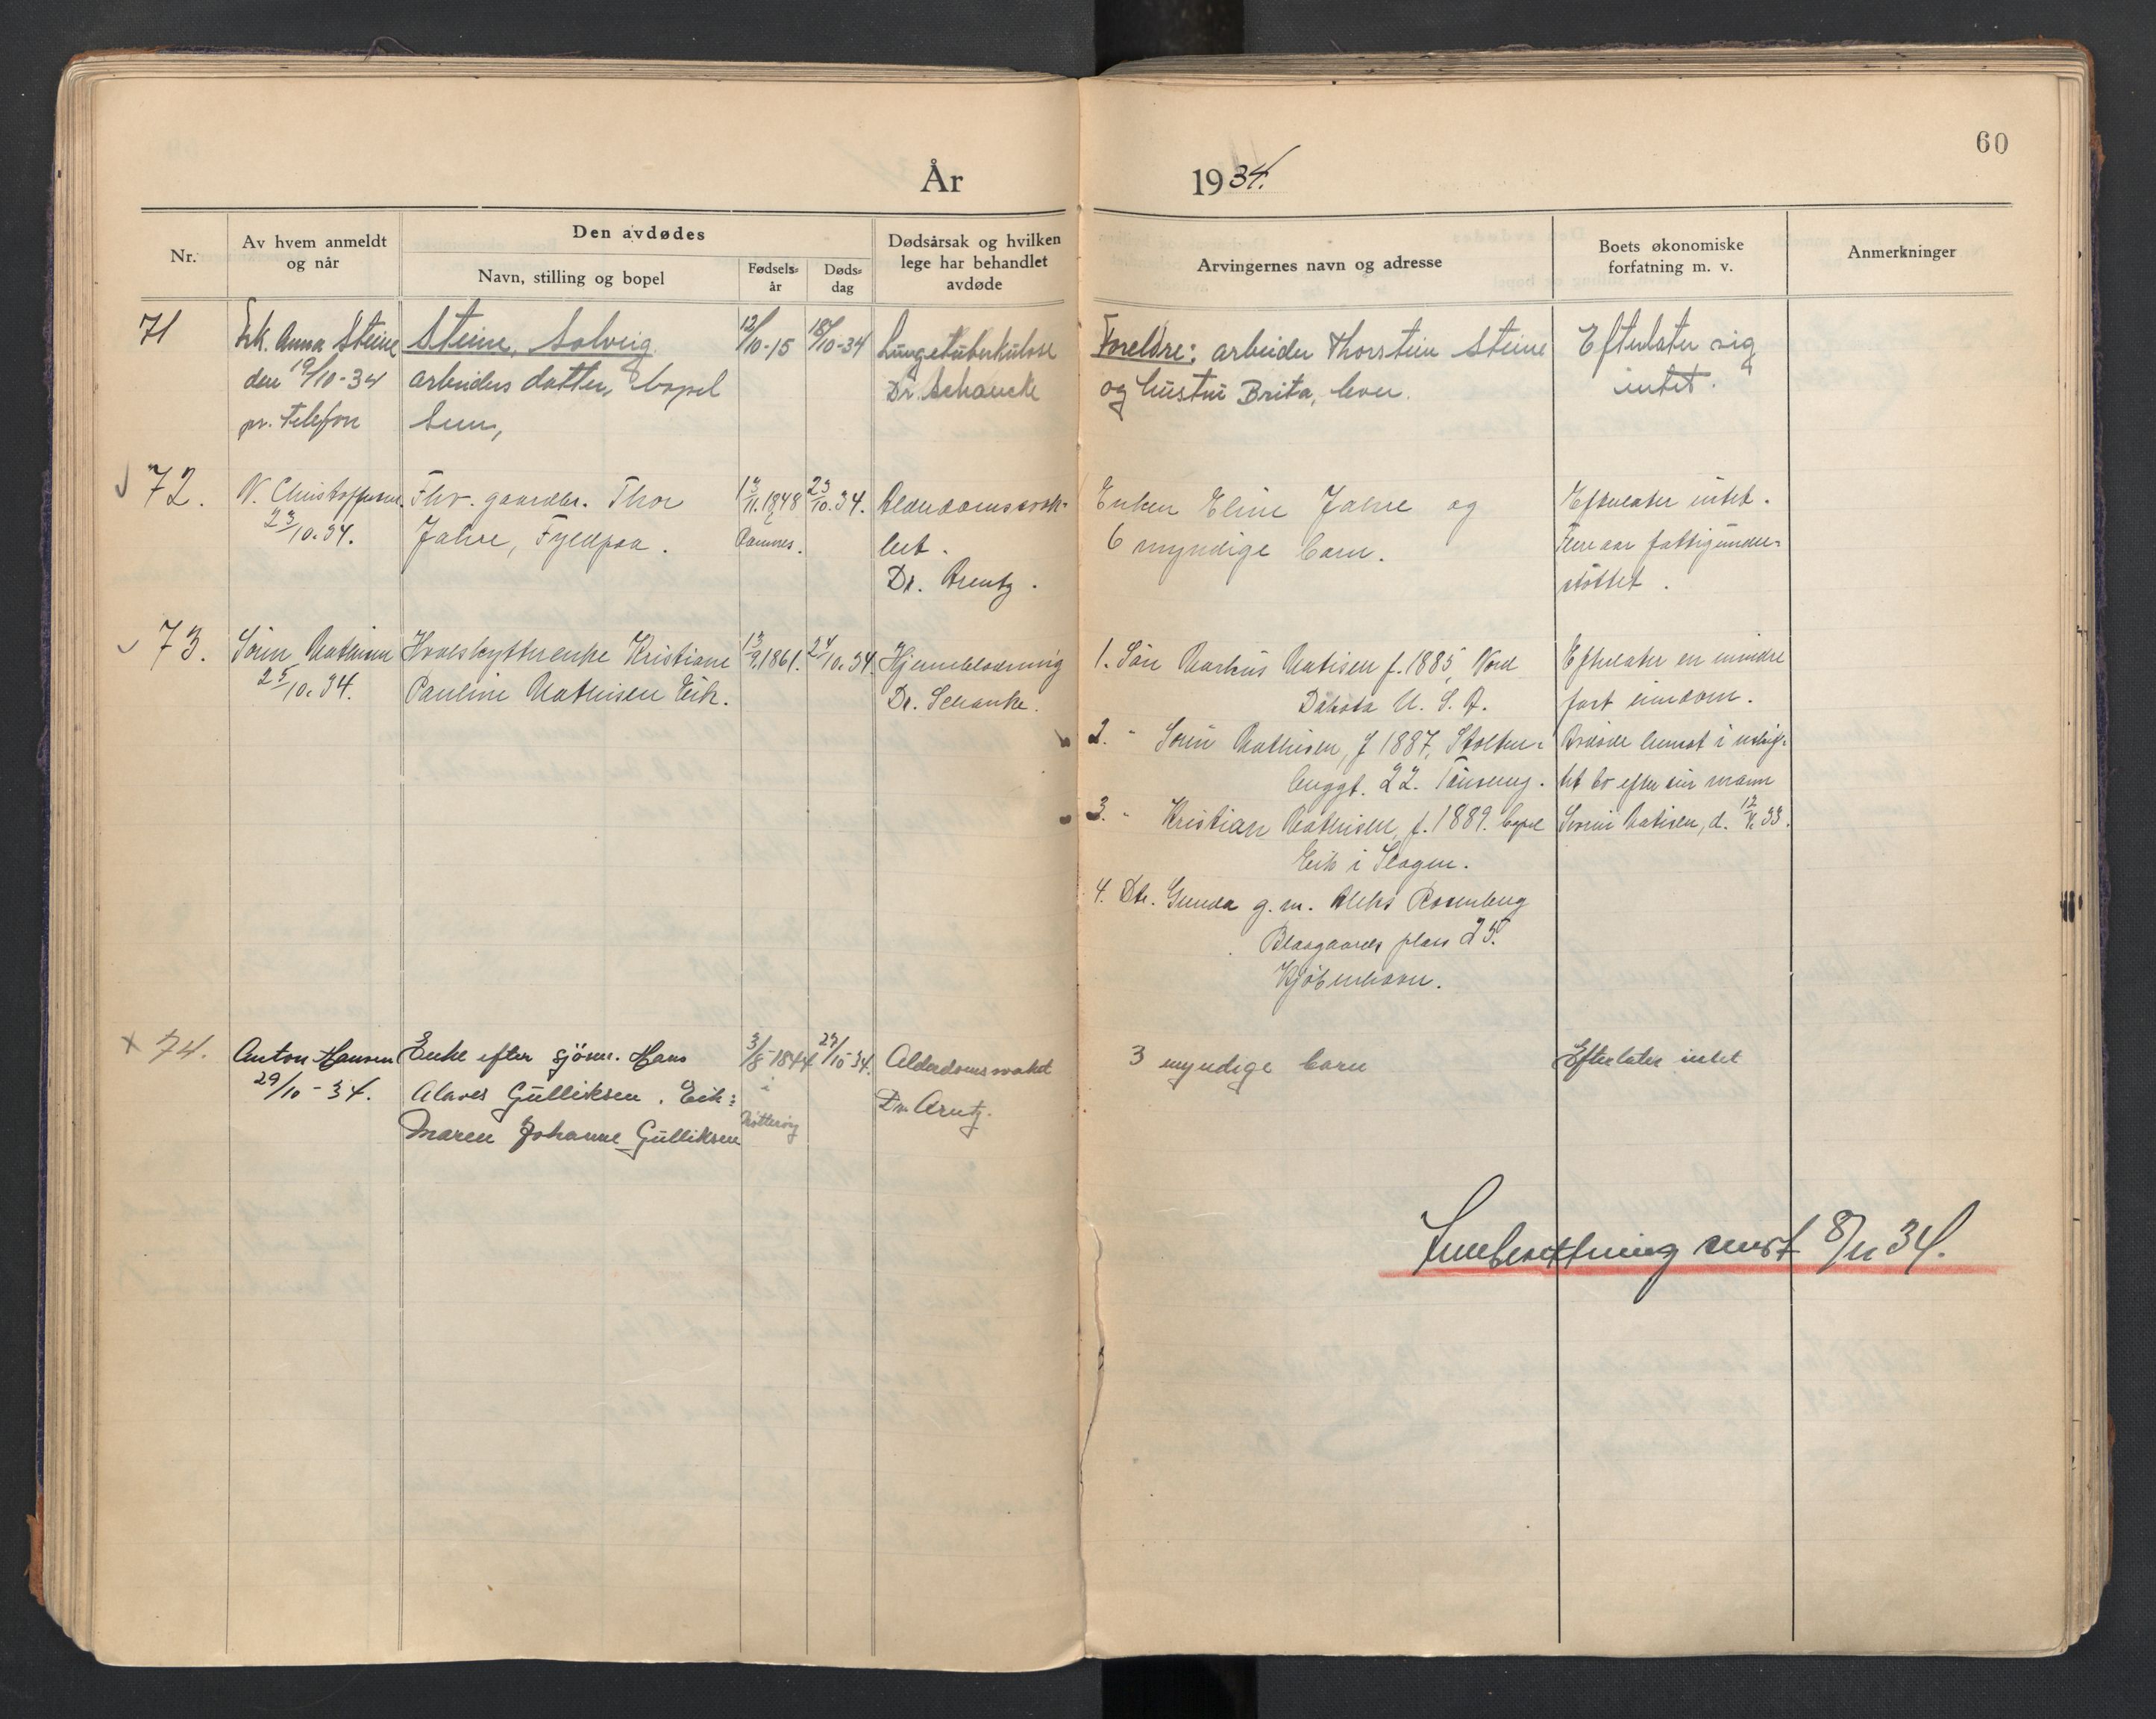 60
År 1934.
Nr.
Av hvem anmeldt
og når
Den avdødes
Navn, stilling og bopel
Fødsels-
år
Døds-
dag
Dødsårsak og hvilken
lege har behandlet
avdøde
Arvingernes navn og adresse
Boets økonomiske
forfatning m. v.
Anmerkninger
71
Frk. Anna Steine
den 19/10-34
pr. Telefon
Steine, Solveig
arbeiders datter, bopel
Sem,
12/10-15
18/10-34
Lungetuberkulose
Dr. Schancke
Foreldre: arbeider Thorstein Steine
og hustru Brita, lever.
Efterlater sig
intet.
72.
N. Christoffersen.
23/10.34.
Fhv. gaardbr. Thor
Jahre, Fyllpaa.
13/11.1848
i
Ramnes.
23/10.34.
Alderdomssvak-
het.
Dr. Arentz.
Enken Eline Jahre og
6 myndige barn.
Efterlater intet.
Flere aar fattigunder-
støttet.
73.
Sørin Mathisen
25/10.34.
Hvalskytterenke Kristiane
Pauline Mathisen Eik.
13/9.1861.
24/10.34.
Hjerneblødning
Dr. Schanke.
1. Søn Markus Matisen f. 1885, Nord
Dakota U. S. A.
2. " Sørin Mathisen, f 1887, Stolten-
berggt. 22. Tønsberg.
3. " Kristian Mathisen, f. 1889. bopel
Eik i Slagen.
4. Dtr. Gunda g. m. Aleks Rosenberg
Blaagaards plass 25.
Kjøbenhavn.
Efterlater en mindre
fast eiendom.
Avdøde hensat i uskif-
tet bo efter sin mann
Sørin Matisen, d. 12/4.33.
74.
Anton Hansen
29/10-34.
Enke efter sjøm. Hans
Alaves Gulliksen. Eik:
Maren Johanne Gulliksen
3/8-1844
i
29/10-34.
Alderdomssvakhet
Dr. Arntz.
3 myndige barn
Efterlater intet
Innberetning sendt 8/11 34.